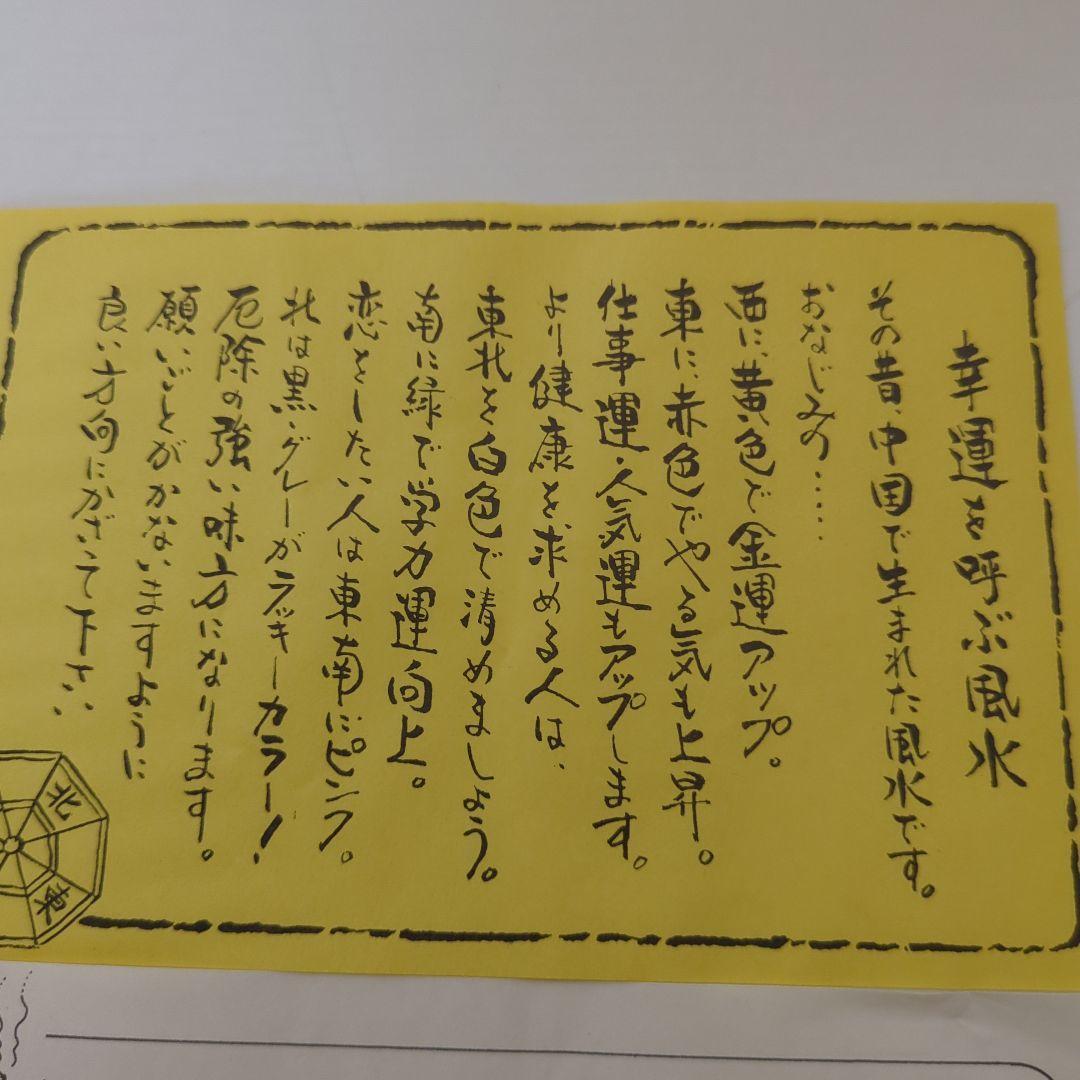 幸運を呼ぶ風水
その昔、中国で生まれた風水です。
おなじみの・・・・・
西に、黄色で金運アップ。
東に、赤色でやる気も上昇。
仕事運・人気運もアップします。
より健康を求める人は、
東北を白色で清めましょう。
南に緑で学力運向上。
恋をしたい人は東南にピンク。
北は黒・グレーがラッキーカラー!
厄除の強い味方になります。
願いごとがかないますように
良い方向にかざって下さい
北
東